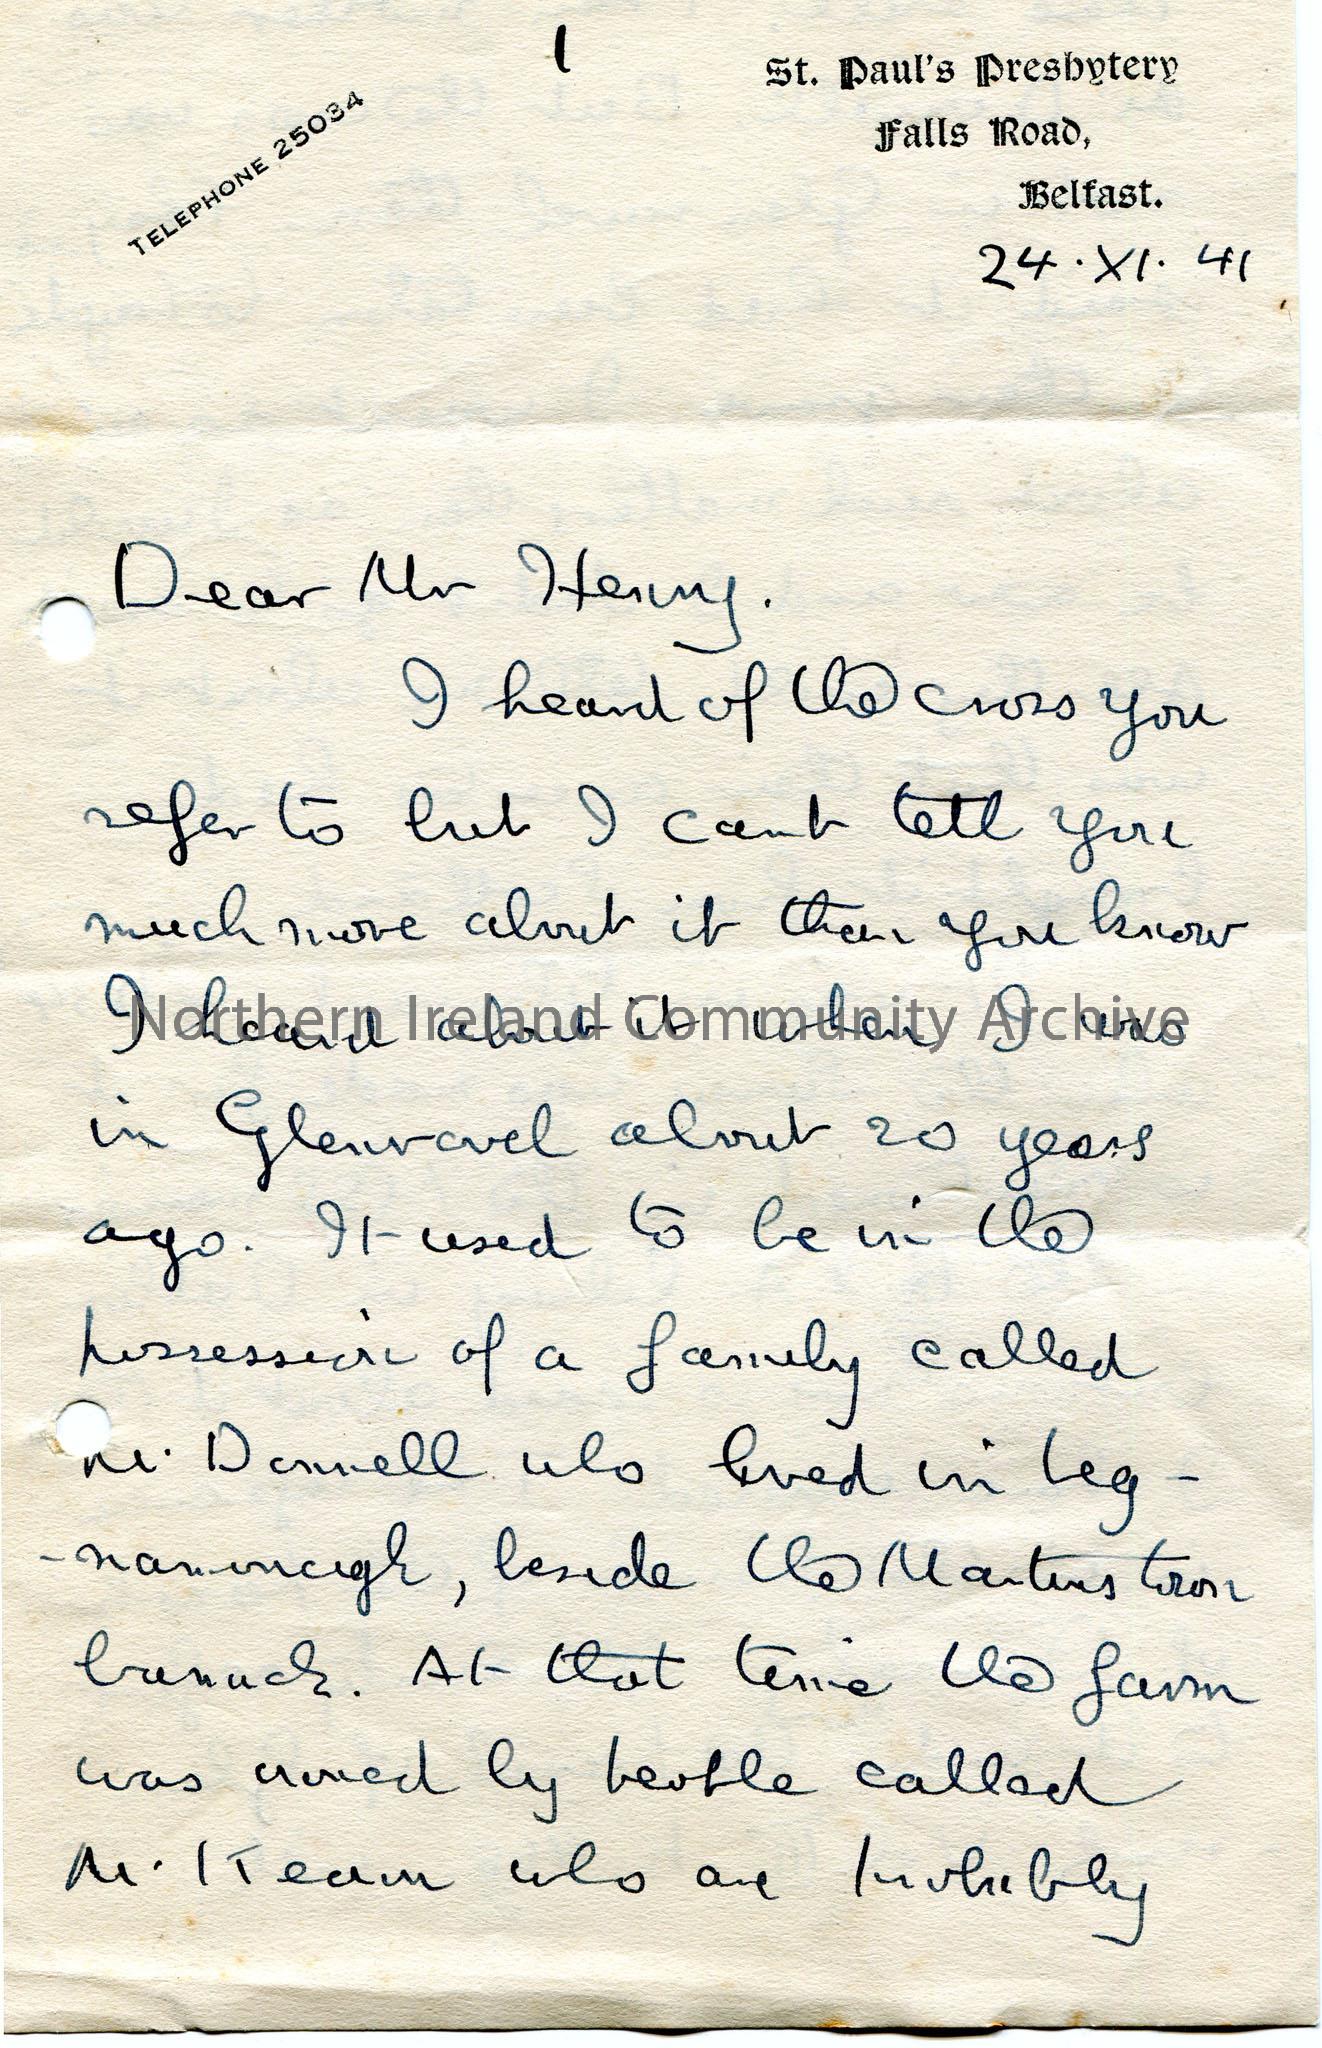 1
St. Paul's Presbytery
Falls Road,
Belfast.
TELEPHONE 25034
24.XI.41
Dear Mr Henry.
I heard of the cross you
refer to but I cant tell you
much more about it than you know
I heard about it when I was
in Glenravel about 20 years
ago. It used to be in the
possession of a family called
Mc Donnell who lived in Leg-
-naminagh, beside the Martinstown
barrack. At that time the farm
was owned by people called
Mc Keown who are probably
Northern Ireland Community Archive